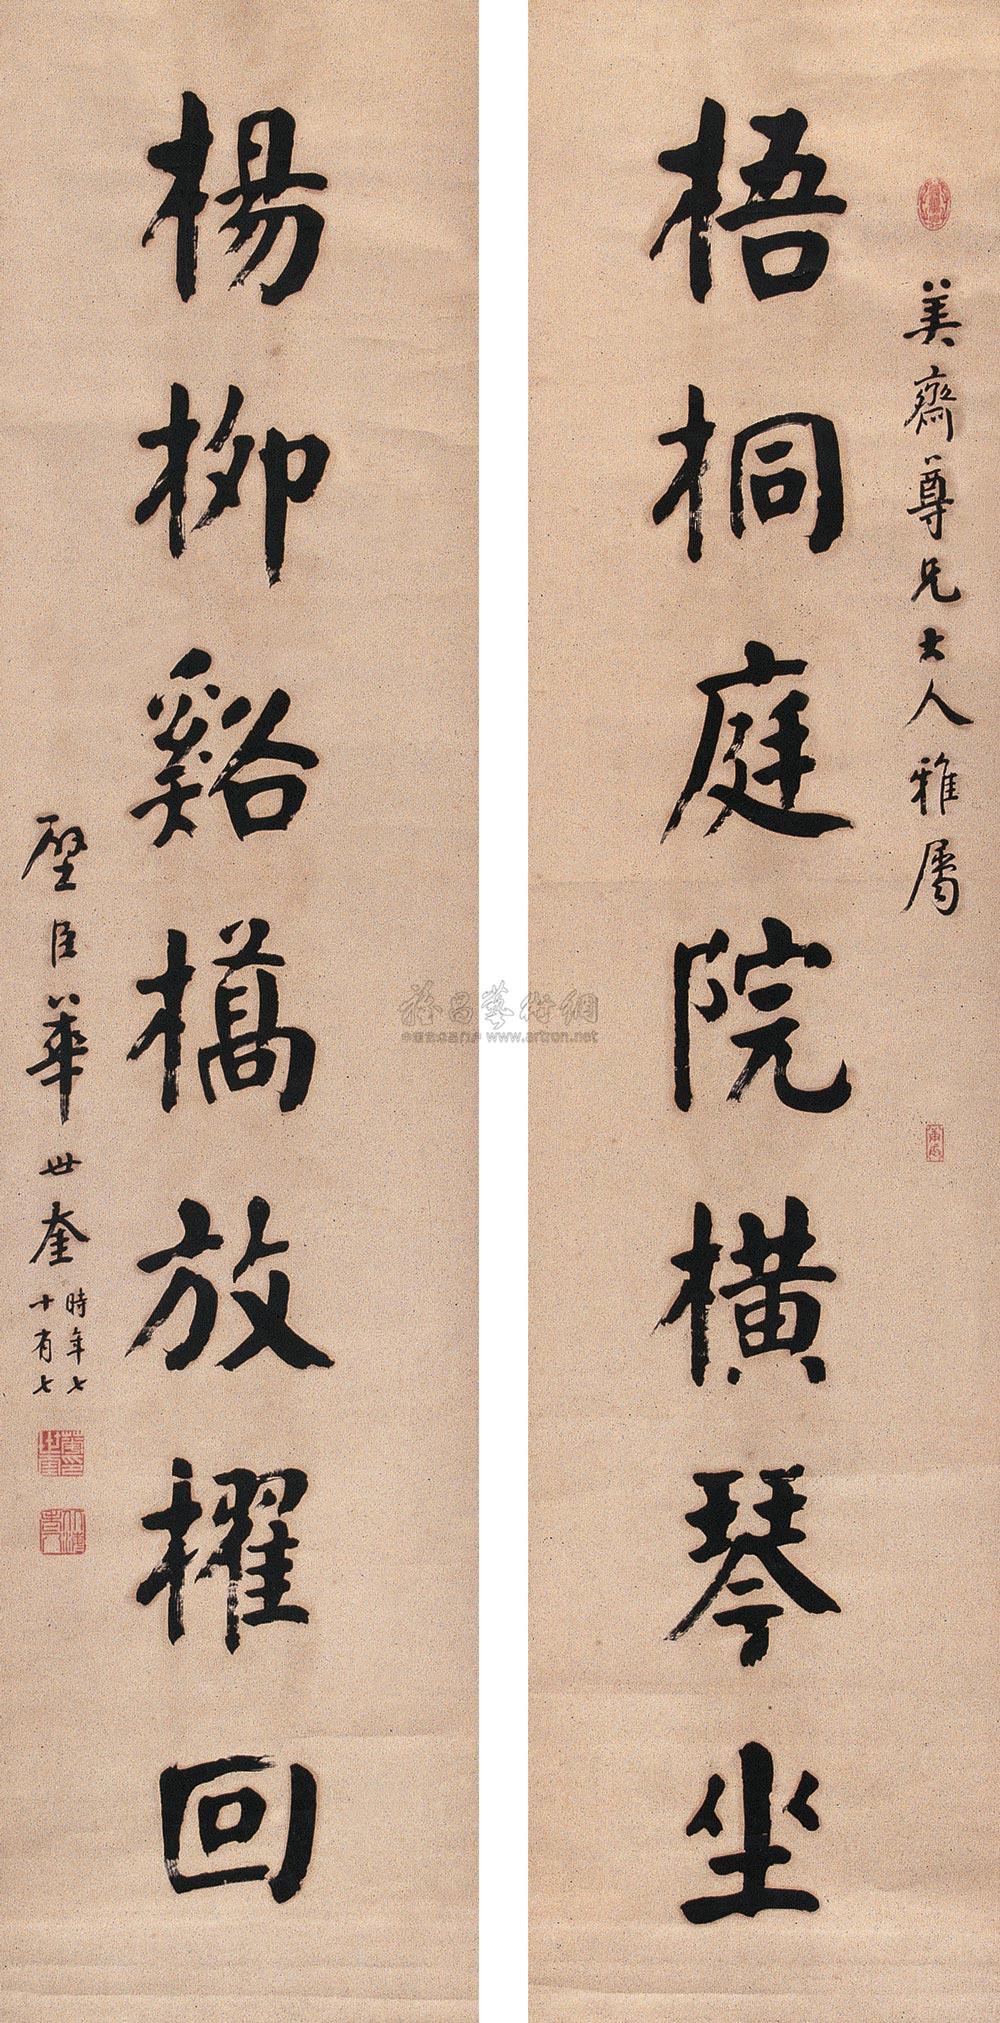 美齋尊兄大人雅屬
梧桐庭院橫琴坐
楊柳谿橋放櫂回
壁臣華世奎
時年七
十有七
雅昌藝術網
www.artron.net